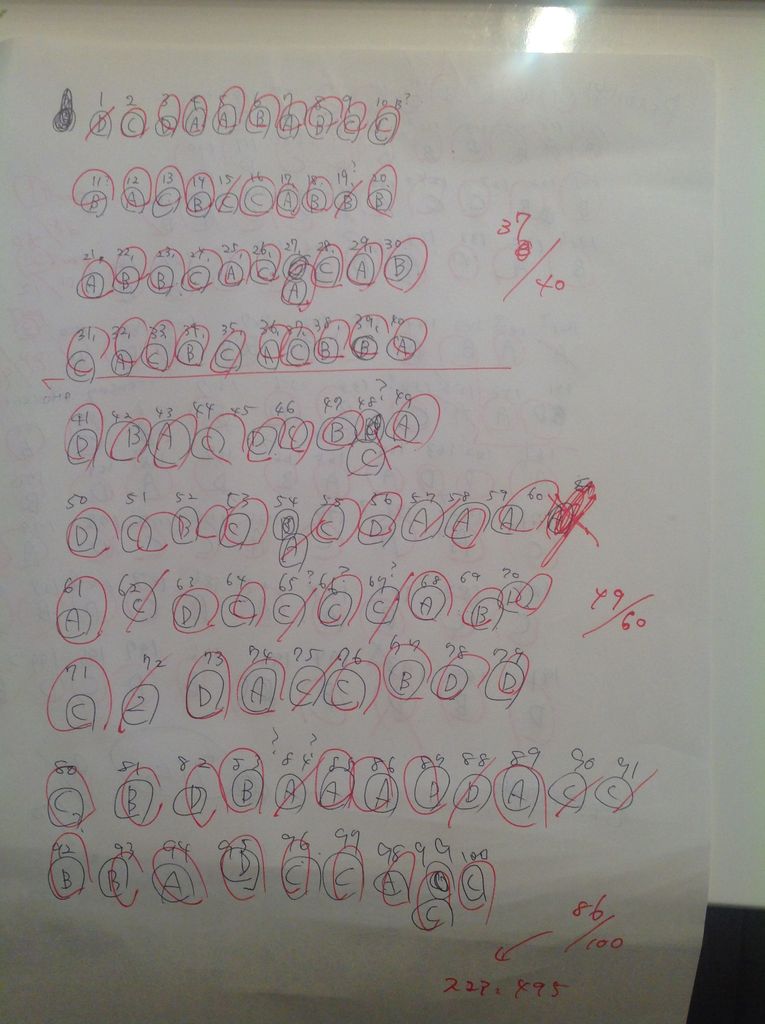 1 2 3 4 5 6 7 8 9 10 B?
D C D A A B A B C C
11? 12 13 14 15 16 17 18 19? 20
B A C B C C A B B B
21 22 23 24 25 26 27 28 29 30
A B B C A C A C A B
37/40
31 32 33 34 35 36 37 38 39 40
C A C B C A C B B A
41 42 43 44 45 46 47 48? 49
D B A C D C B C A
50 51 52 53 54 55 56 57 58 59 60
D C B C A C D A A A
61 62 63 64 65? 66? 67? 68 69 70
A C D C C C C A B D
49/60
71 72 73 74 75 76 77 78 79
C 2 D A C C B D D
80 81 82 83 ? 84? 85 86 87 88 89 90 91
C B D B A A A D D A C C
92 93 94 95 96 97 98 99 100
B B A D C C A C C
86/100
495